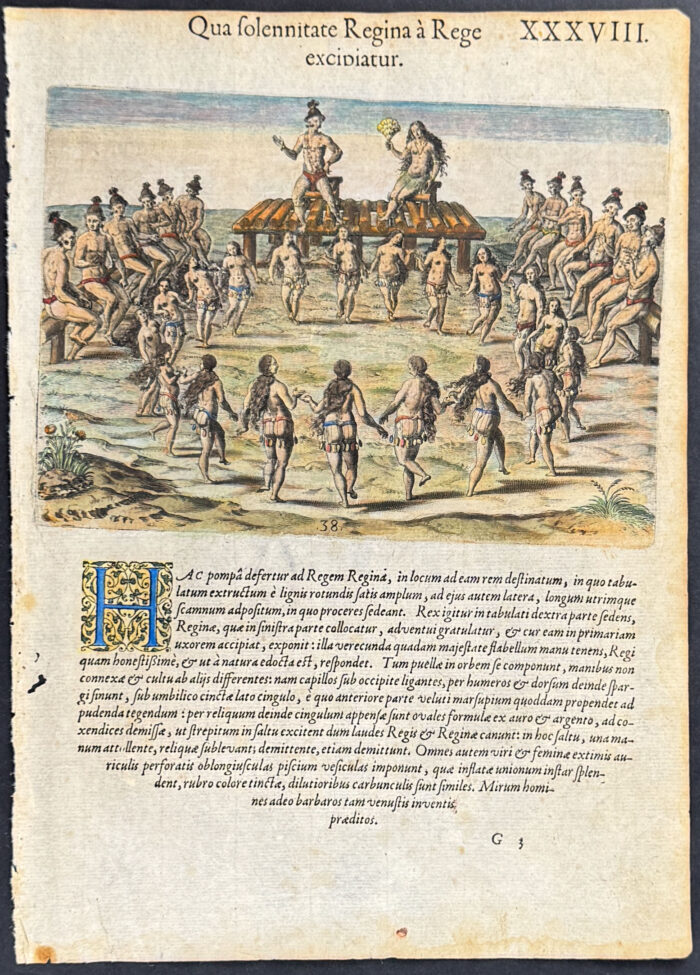 Qua solennitate Regina à Rege
XXXVIII.
excipiatur.
38.
HAC pompâ defertur ad Regem Reginæ, in locum ad eam rem destinatum, in quo tabu-
latum extructum è lignis rotundis satis amplum, ad ejus autem latera, longum utrimque
scamnum adpositum, in quo proceres sedeant. Rex igitur in tabulati dextra parte sedens,
Reginæ, quæ in sinistra parte collocatur, adventui gratulatur, & cur eam in primariam
uxorem accipiat, exponit: illa verecunda quadam majestate flabellum manu tenens, Regi
quam honestissimè, & ut à natura edocta est, respondet. Tum puellæ in orbem se componunt, manibus non
connexæ & cultu ab alijs differentes: nam capillos sub occipite ligantes, per humeros & dorsum deinde spar-
gi sinunt, sub umbilico cinctæ lato cingulo, è quo anteriore parte veluti marsupium quoddam propendet ad
pudenda tegendum: per reliquum deinde cingulum appensæ sunt ovales formulæ ex auro & argento, ad co-
xendices demissæ, ut strepitum in saltu excitent dum laudes Regis & Reginæ canunt: in hoc saltu, una ma-
num attollente, reliquæ sublevant: demittente, etiam demittunt. Omnes autem viri & feminæ extimis au-
riculis perforatis oblongiusculas piscium vesiculas imponunt, quæ inflatæ unionum instar splen-
dent, rubro colore tinctæ, dilutioribus carbunculis sunt similes. Mirum homi-
nes adeo barbaros tam venustis inventis,
præditos.
G 3